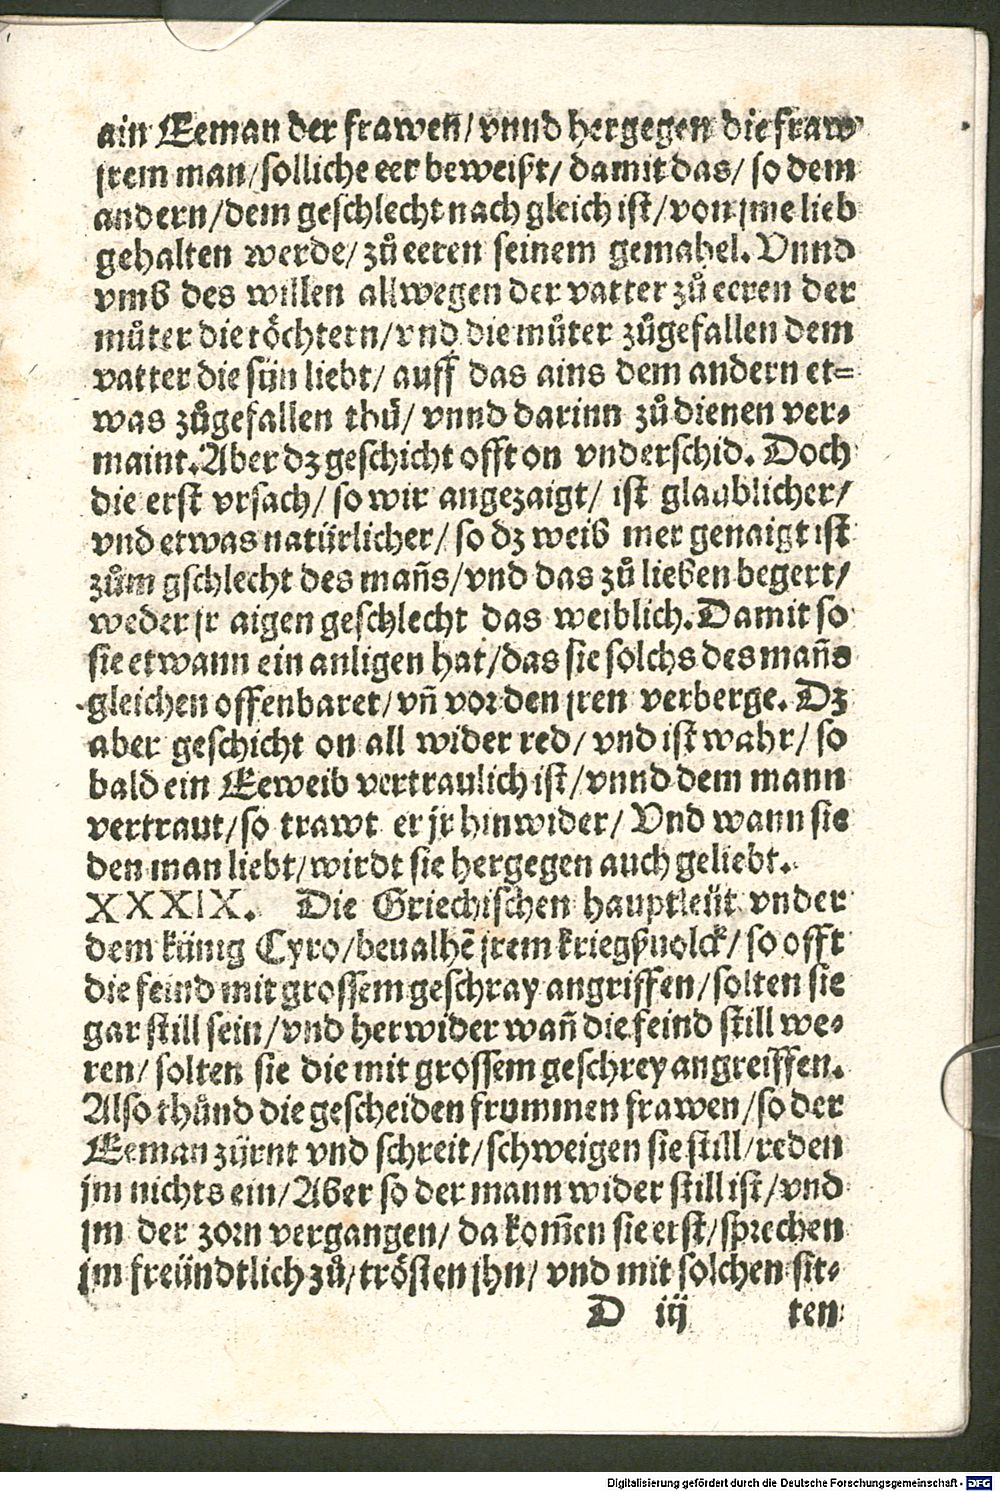 ain Eeman der frawen̄/ vnnd hergegen die fraw
jrem man/ solliche eer beweißt/ damit das/ so dem
andern/ dem geschlecht nach gleich ist/ von jme lieb
gehalten werde/ zů eeren seinem gemahel. Vnnd
vmb des willen allwegen der vatter zů eeren der
můter die töchtern/ vnd die můter zůgefallen dem
vatter die sün liebt/ auff das ains dem andern et-
was zůgefallen thů/ vnnd darinn zů dienen ver-
maint. Aber dz geschicht offt on vnderschid. Doch
die erst vrsach/ so wir angezaigt/ ist glaublicher/
vnd etwas natürlicher/ so dz weib mer genaigt ist
zům gschlecht des man̄s/ vnd das zů lieben begert/
weder jr aigen geschlecht das weiblich. Damit so
sie etwann ein anligen hat/ das sie solchs des man̄s
gleichen offenbaret/ vn̄ vor den jren verberge. Dz
aber geschicht on all wider red/ vnd ist wahr/ so
bald ein Eeweib vertraulich ist/ vnnd dem mann
vertraut/ so trawt er jr hinwider/ Vnd wann sie
den man liebt/ wirdt sie hergegen auch geliebt.
XXXIX. Die Griechischen hauptleüt vnder
dem künig Cyro/ beualhē jrem kriegßuolck/ so offt
die feind mit grossem geschray angriffen/ solten sie
gar still sein/ vnd herwider wan̄ die feind still we-
ren/ solten sie die mit grossem geschrey angreiffen.
Also thůnd die gescheiden frummen frawen/ so der
Eeman zürnt vnd schreit/ schweigen sie still/ reden
jm nichts ein/ Aber so der mann wider still ist/ vnd
jm der zorn vergangen/ da kom̄en sie erst/ sprechen
jm freündtlich zů/ trösten jhn/ vnd mit solchen sit-
D iij ten
Digitalisierung gefördert durch die Deutsche Forschungsgemeinschaft - DFG